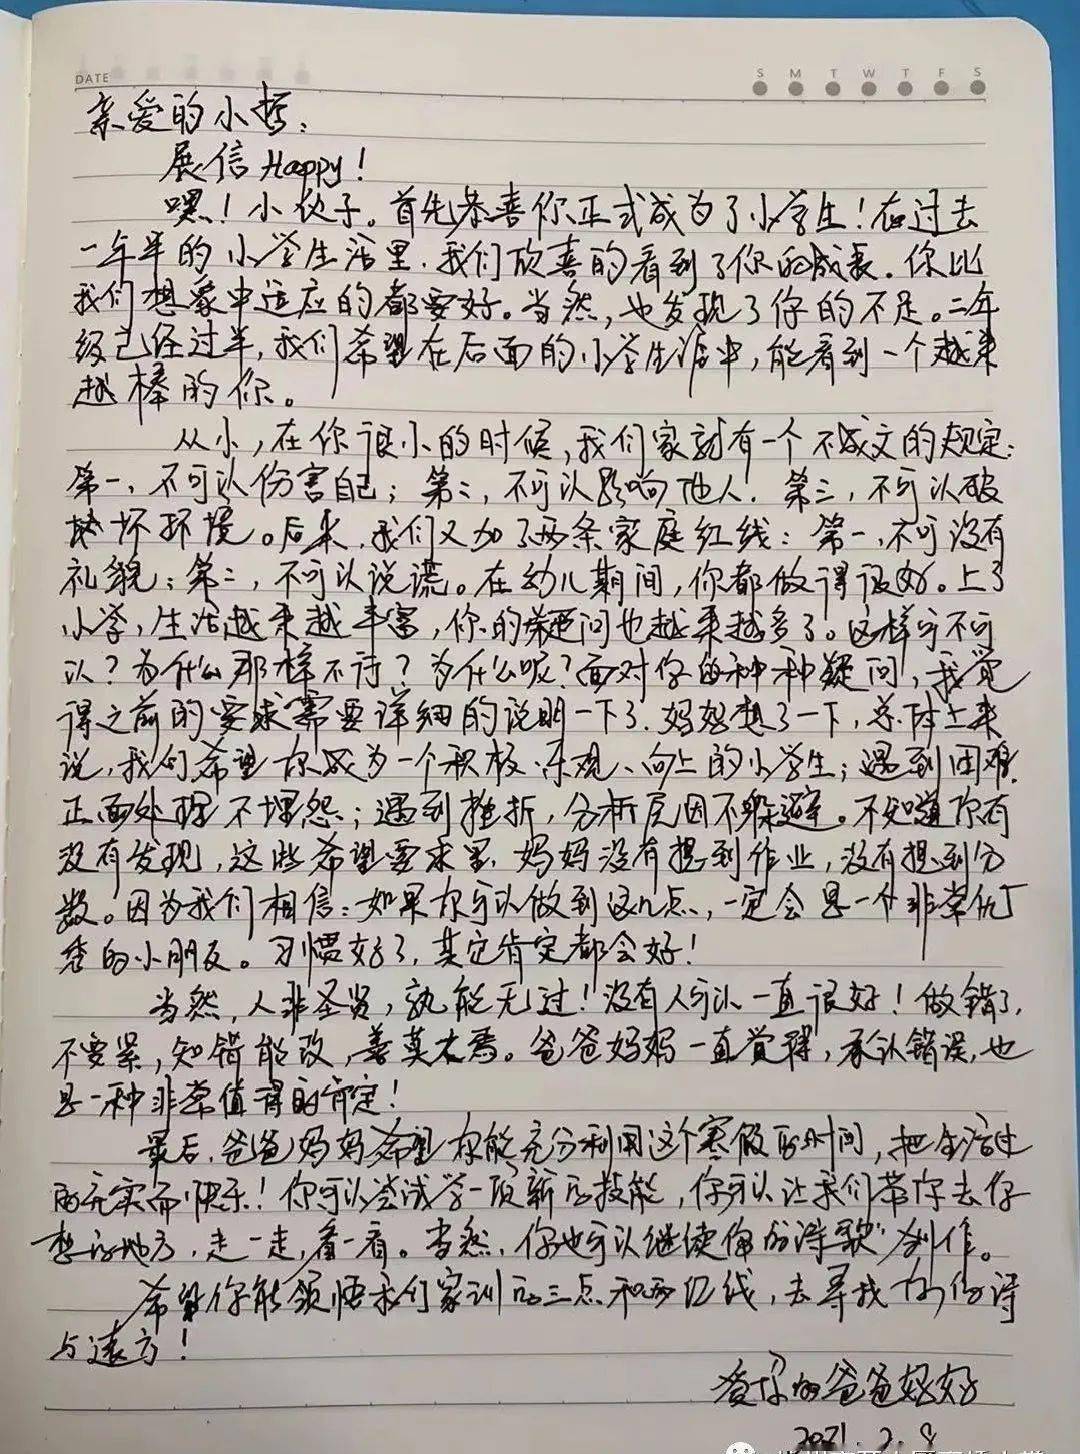 DATE
S M T W T F S
亲爱的小哲：
展信Happy！
嘿！小伙子。首先恭喜你正式成为了小学生！在过去
一年半的小学生活里，我们欣喜的看到了你的成长。你比
我们想象中适应的都要好。当然，也发现了你的不足。二年
级已经过半，我们希望在后面的小学生活中，能看到一个越来
越棒的你。
从小，在你很小的时候，我们家就有一个不成文的规定：
第一，不可以伤害自己；第二，不可以影响他人！第三，不可以破
坏环境。后来，我们又加了两条家庭红线：第一，不可没有
礼貌；第二，不可以说谎。在幼儿期间，你都做得很好。上了
小学，生活越来越丰富，你的疑问也越来越多了。这样可不可
以？为什么那样不行？为什么呢？面对你的种种疑问，我觉
得之前的要求需要详细的说明一下了。妈妈想了一下，总体上来
说，我们希望你成为一个积极、乐观、向上的小学生；遇到困难，
正面处理不埋怨；遇到挫折，分析原因不躲避。不知道你有
没有发现，这些希望要求里，妈妈没有提到作业，没有提到分
数。因为我们相信：如果你可以做到这几点，一定会是一个非常优
秀的小朋友。习惯好了，其它肯定都会好！
当然，人非圣贤，孰能无过！没有人可以一直很好！做错了，
不要紧，知错能改，善莫大焉。爸爸妈妈一直觉得，承认错误，也
是一种非常值得的肯定！
最后，爸爸妈妈希望你能充分利用这个寒假的时间，把生活过
的充实而快乐！你可以尝试学一项新的技能，你可以让我们带你去你
想的地方，走一走，看一看。当然，你也可以继续你的“诗歌”创作。
希望你能领悟我们家训的三点和两红线，去寻找你的诗
与远方！
爱你的爸爸妈妈
2021.2.8